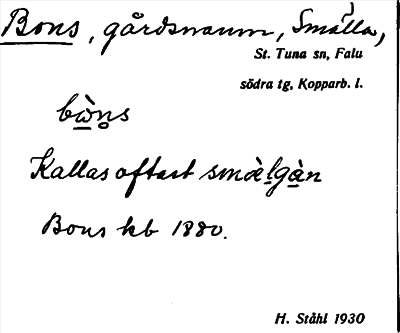 Bons, gårdsnamn, Smälla,
St. Tuna sn, Falu
södra tg, Kopparb. l.
bὼns
Kallas oftast smälgàn
Bons kb 1880.
H. Ståhl 1930